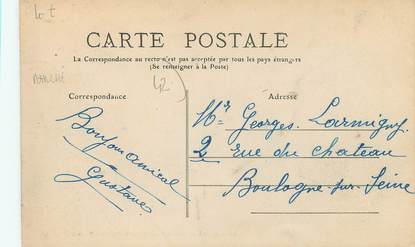 Lot
CARTE POSTALE
La Correspondance au recto n'est pas acceptée par tous les pays étrangers
(Se renseigner à la Poste)
MARCHÉ
42
Correspondance
Adresse
Bonjour amical
Gustave
Mr Georges Larmigny
2 rue du chateau
Boulogne-sur-Seine